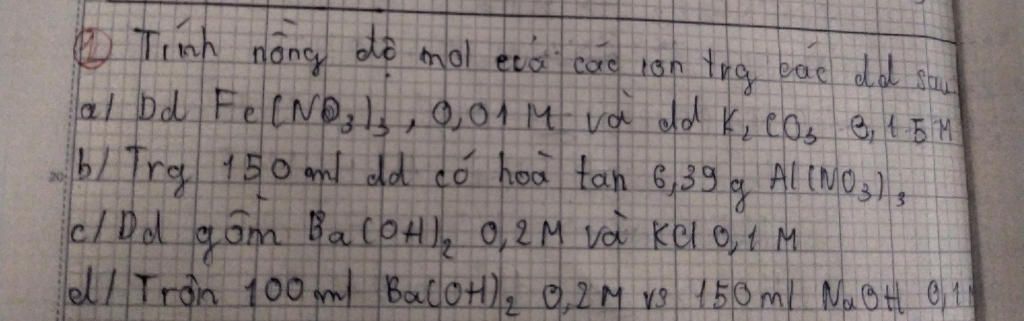 ② Tính nồng độ mol của các ion trg các dd sau
a/ Dd Fe(NO₃)₃, 0,01 M và dd K₂CO₃ 0,15M
b/ Trg 150 ml dd có hoà tan 6,39 g Al(NO₃)₃
c/ Dd gồm Ba(OH)₂ 0,2M và KCl 0,1 M
d/ Trộn 100 ml Ba(OH)₂ 0,2M vs 150 ml NaOH 0,1M